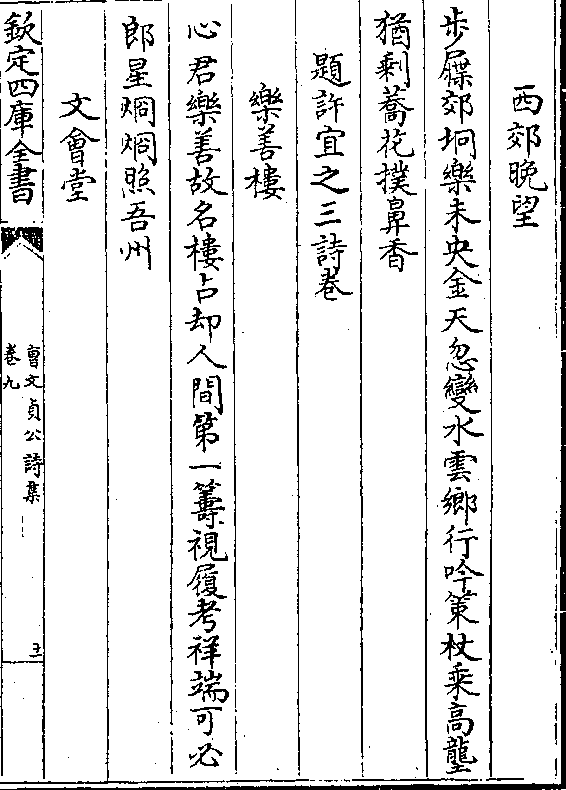 西郊晚望
步屧郊坰樂未央金天忽變水雲鄉行吟策杖乘高壟
猶剩蕎花撲鼻香
題許宜之三詩巻
樂善樓
心君樂善故名樓占却人間第一籌視履考祥端可必
郎星烱烱照吾州
文會堂
欽定四庫全書
曹文貞公詩集
巻九
五